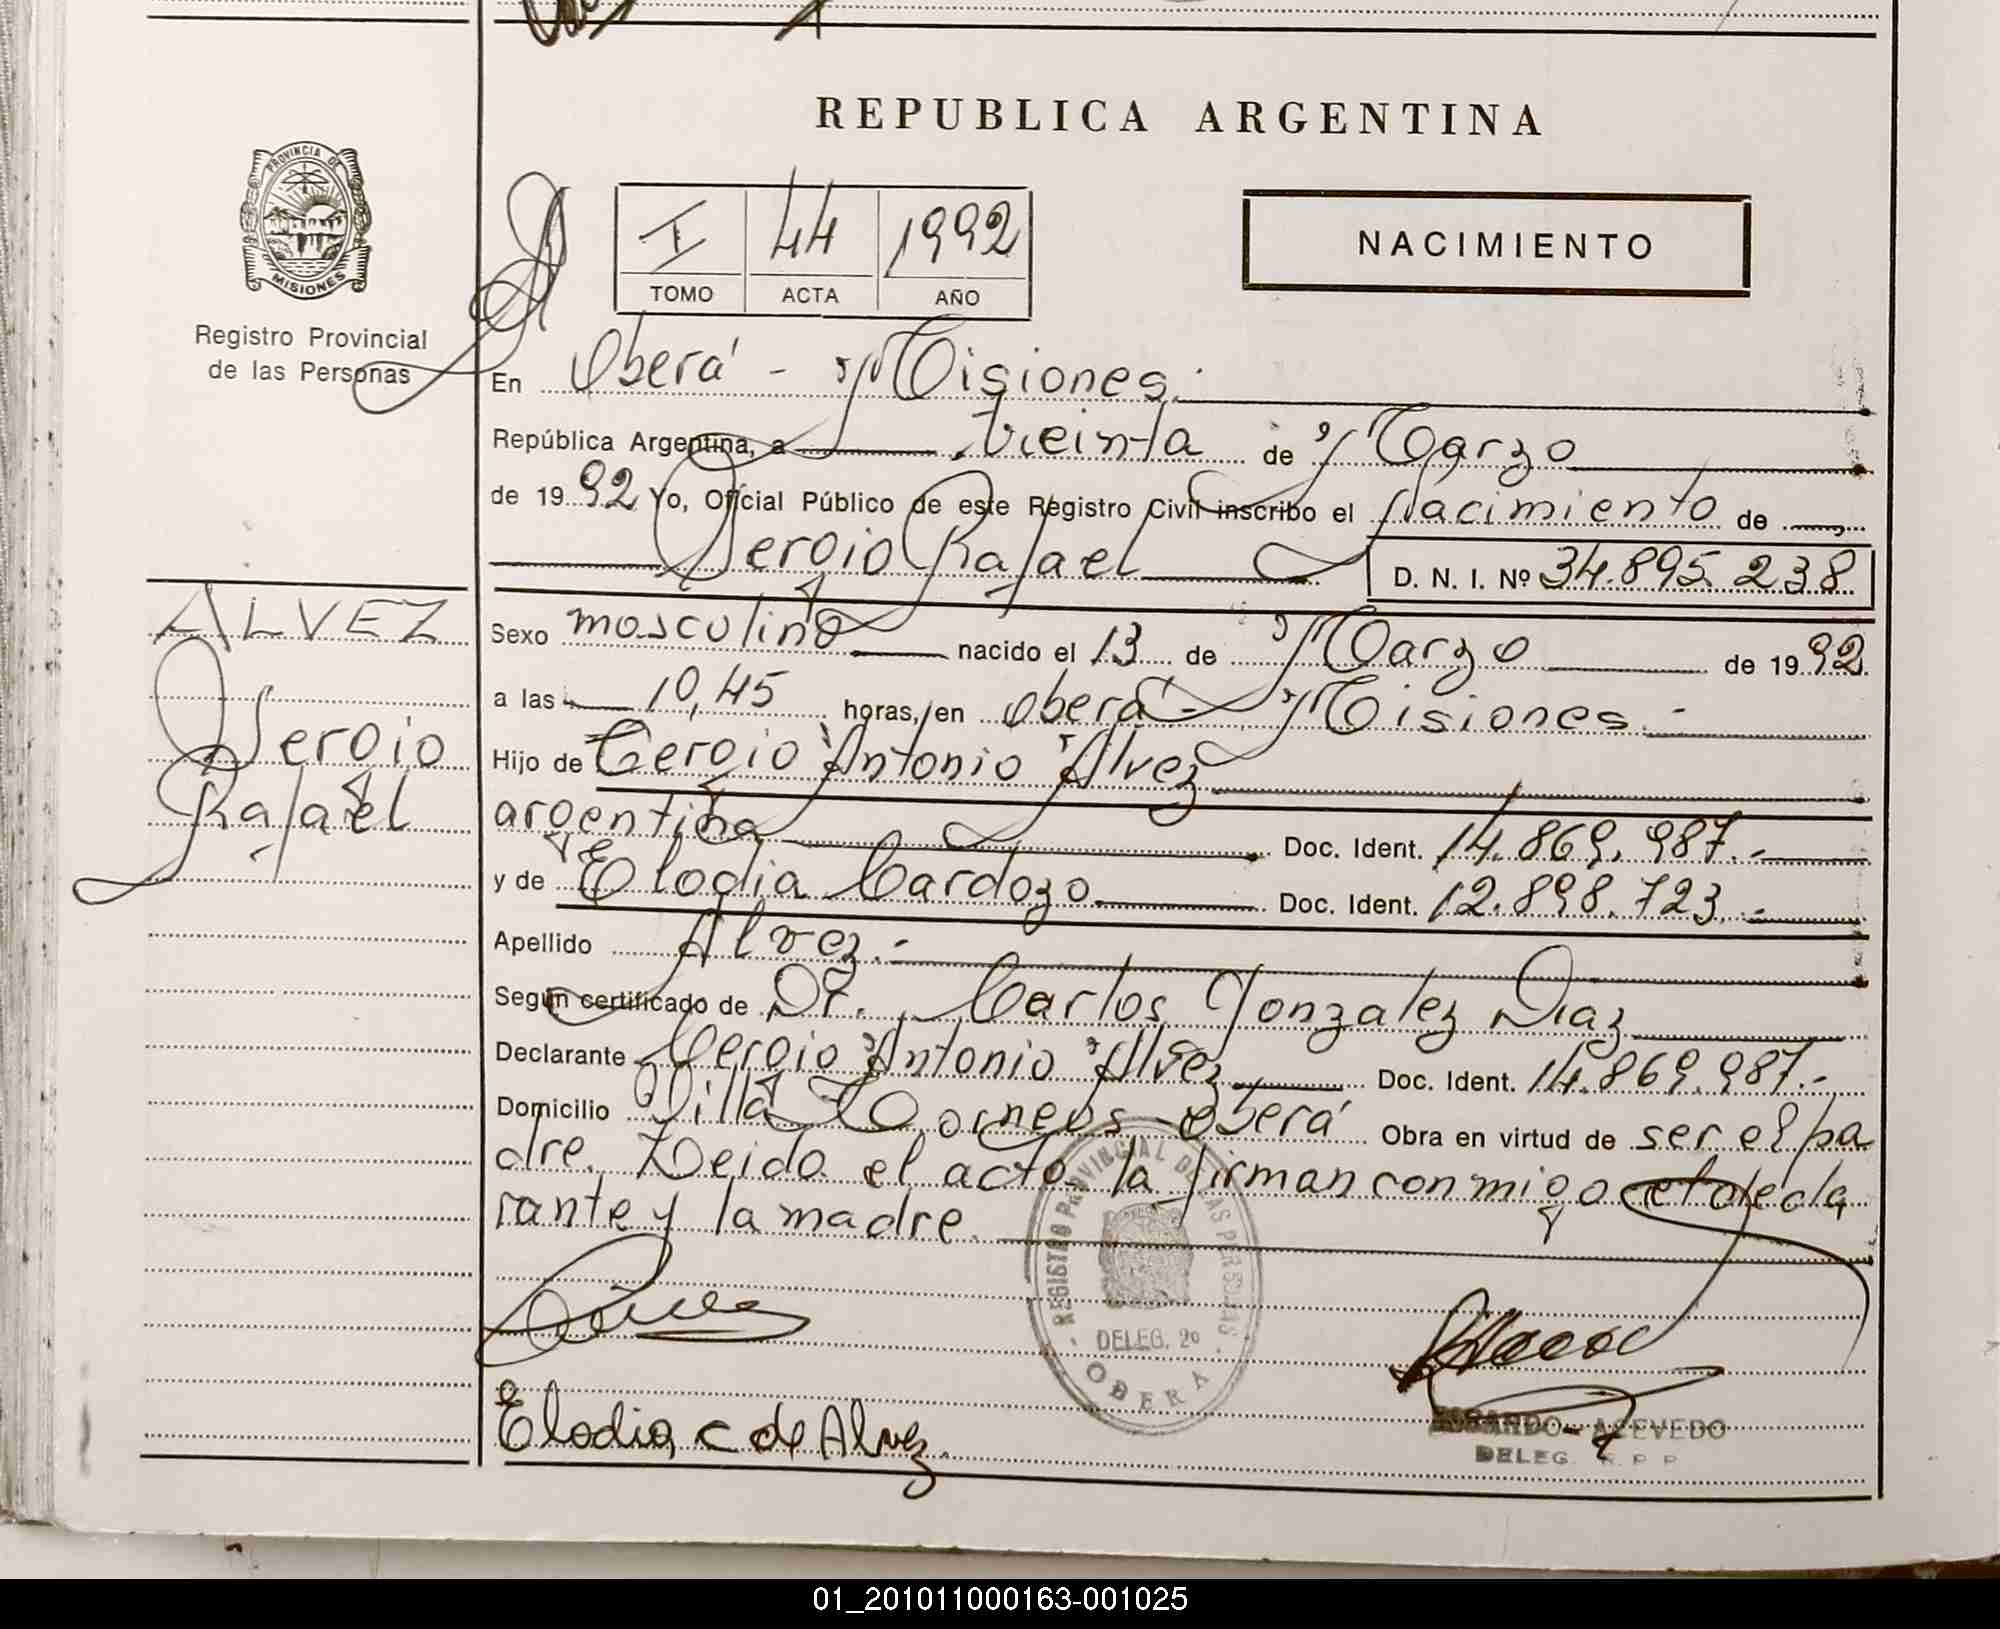 REPUBLICA ARGENTINA
PROVINCIA DE
MISIONES
Registro Provincial
de las Personas
I 44 1992
TOMO ACTA AÑO
NACIMIENTO
En Oberá - Misiones.
República Argentina, a treinta de Marzo
de 1992 Yo, Oficial Público de este Registro Civil inscribo el Nacimiento de
Sergio Rafael D. N. I. Nº 34.895.238
ALVEZ
Sergio
Rafael
Sexo masculino nacido el 13 de Marzo de 1992
a las 10,45 horas, en Oberá - Misiones.-
Hijo de Sergio Antonio Alvez
argentina Doc. Ident. 14.869.987.-
y de Elodia Cardozo Doc. Ident. 12.898.723.-
Apellido Alvez.-
Según certificado de Dr. Carlos Gonzalez Diaz
Declarante Sergio Antonio Alvez Doc. Ident. 14.869.987.-
Domicilio Villa Oberá Obra en virtud de ser el pa
dre. Leida el acto, la firman conmigo el decla
rante y la madre.
REGISTRO PROVINCIAL DE LAS PERSONAS
DELEG. 20
OBERA
Elodia C de Alvez.
ACEVEDO
DELEG. R. P. P.
01_201011000163-001025